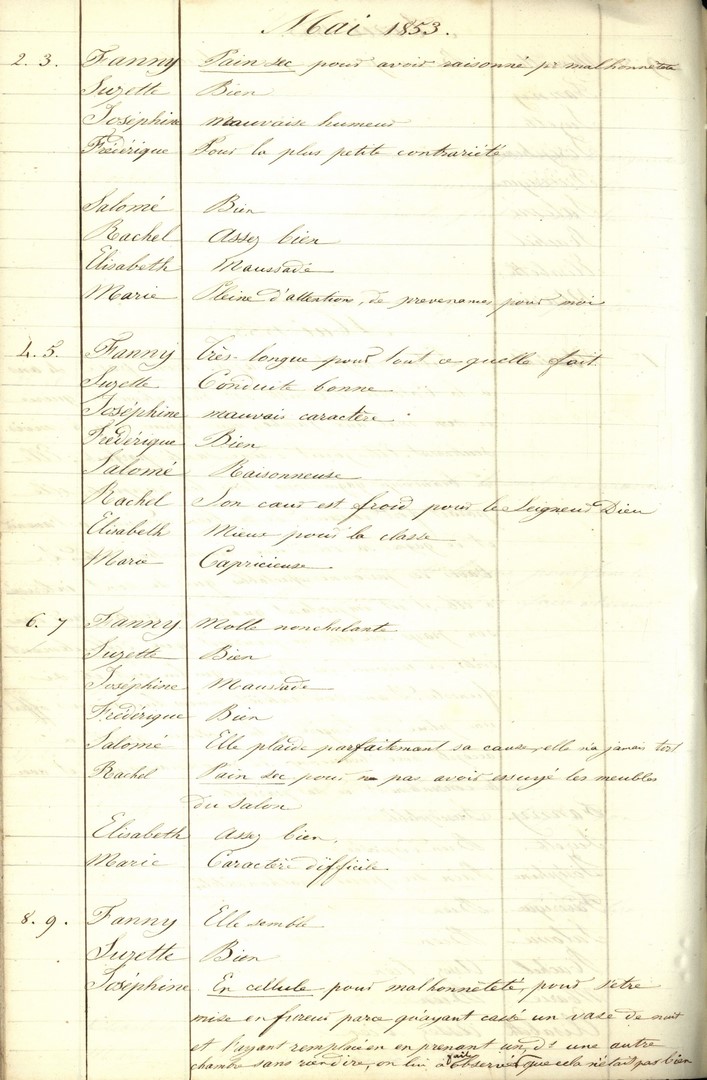 Mai 1853.
2. 3. Fanny Pain sec pour avoir raisonné pr malhonnêteté
Suzette Bien
Joséphine mauvaise humeur
Frédérique Pour la plus petite contrariété
Salomé Bien
Rachel Assez bien
Elisabeth Maussade
Marie Pleine d'attentions, de prevenances pour moi
4. 5. Fanny très-longue pour tout ce quelle fait.
Suzette Conduite bonne
Joséphine mauvais caractère.
Frédérique Bien
Salomé Raisonneuse
Rachel Son cœur est froid pour le Seigneur Dieu
Elisabeth Mieux pour la classe
Marie Capricieuse
6. 7 Fanny Molle nonchalante
Suzette Bien
Joséphine Maussade
Frédérique Bien
Salomé Elle plaide parfaitement sa cause, elle n'a jamais tort
Rachel Pain sec pour ne pas avoir essuyé les meubles
du salon
Elisabeth Assez bien.
Marie Caractère difficile.
8. 9. Fanny Elle semble
Suzette Bien
Joséphine En cellule pour malhonnêteté, pour s'etre
mise en fureur parce qu'ayant cassé un vase de nuit
et l'ayant remplacé en en prenant un, ds une autre
chambre sans rien dire, on lui a fait observer que cela n'était pas bien